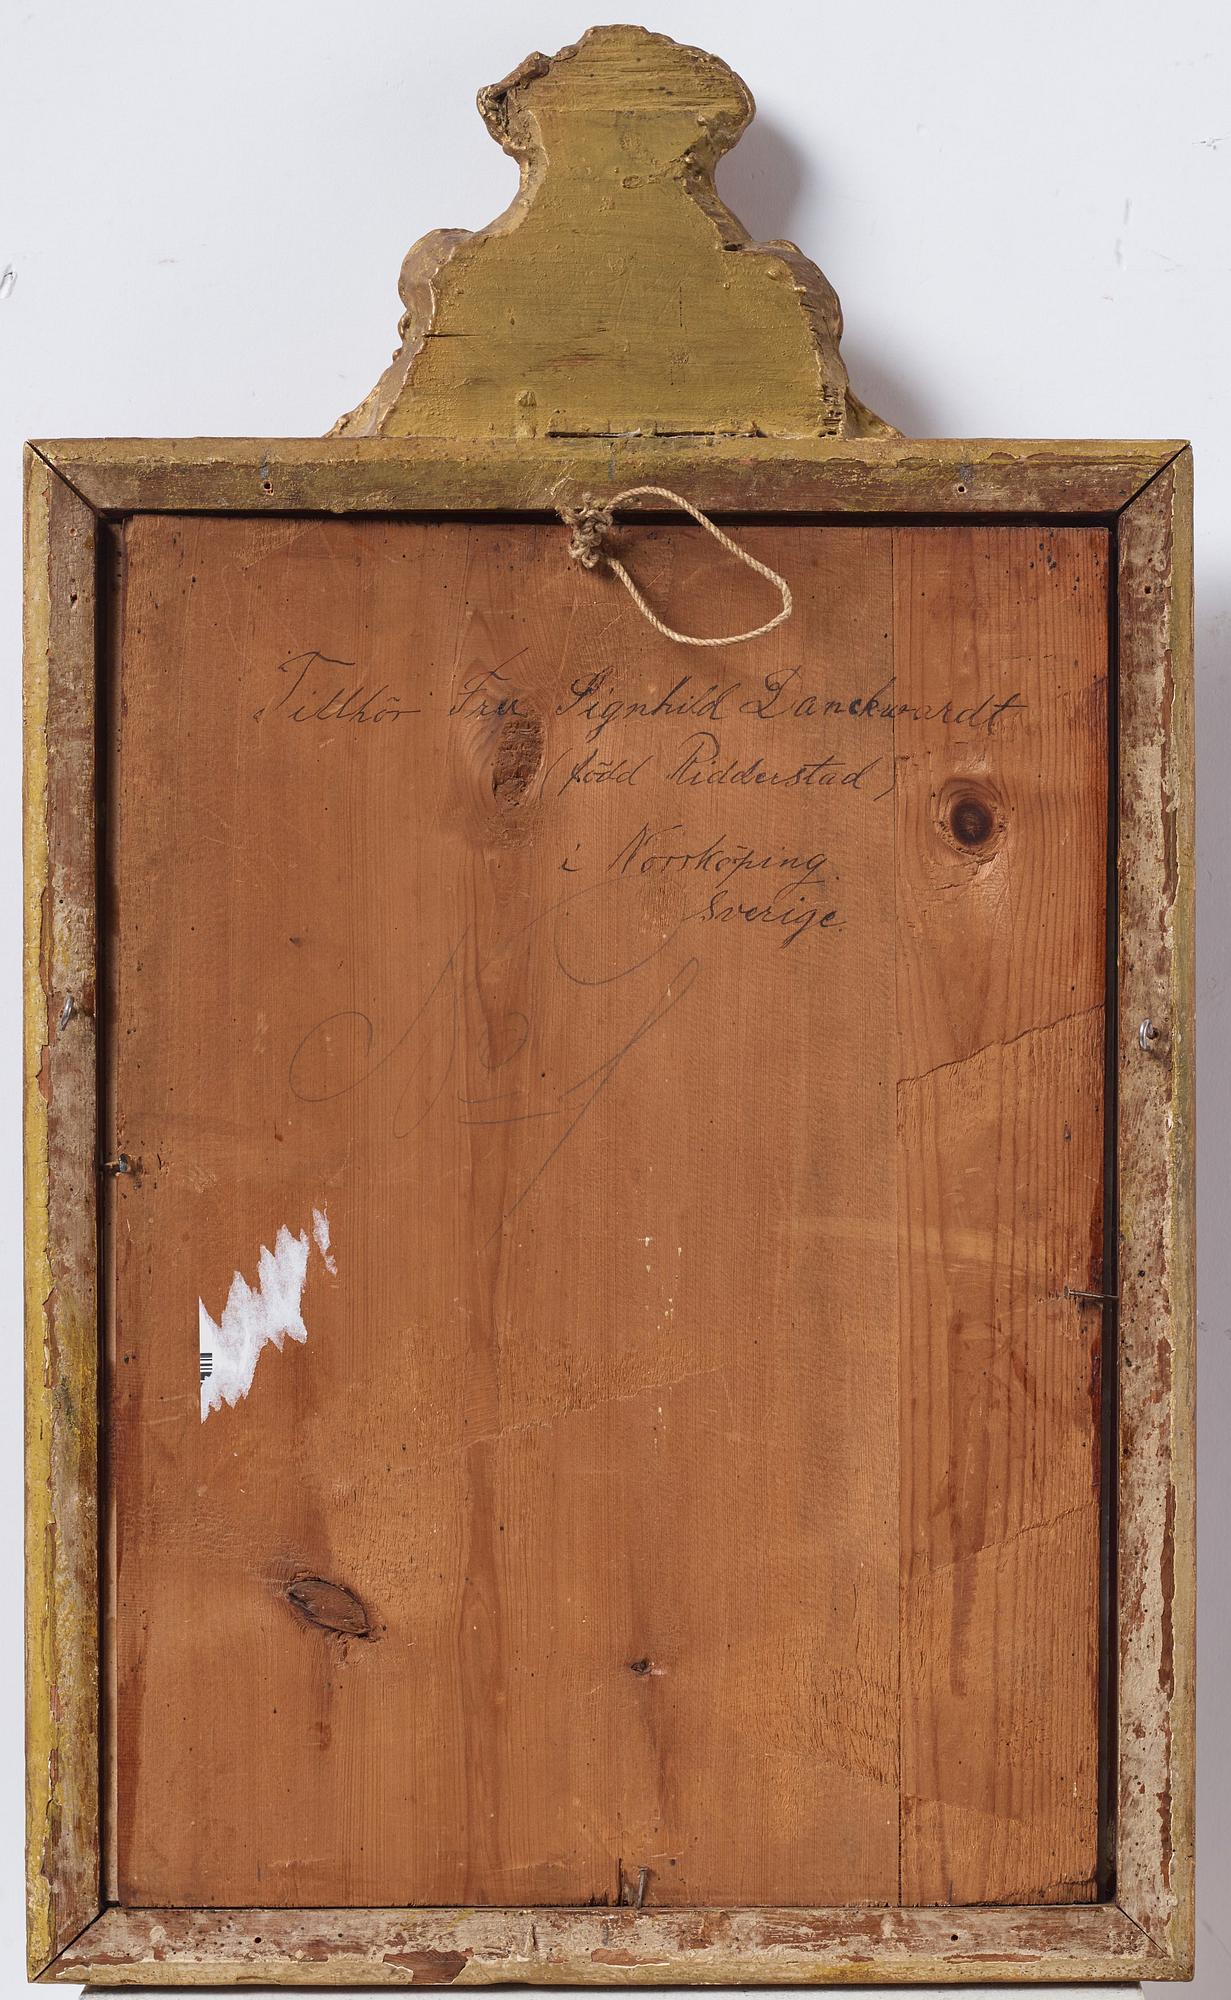 Tillhör Fru Signhild Danckwardt
(född Ridderstad)
i Norrköping.
Sverige.